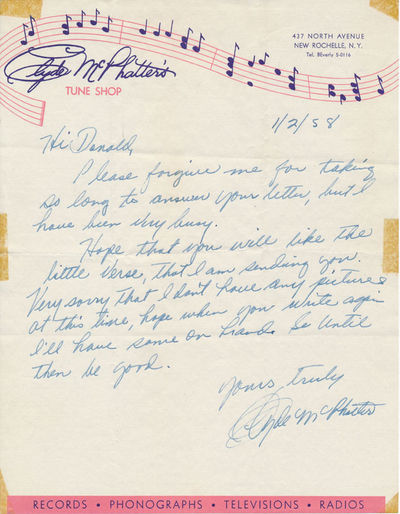 437 NORTH AVENUE
NEW ROCHELLE, N.Y.
Tel. BEverly 5-0116
Clyde McPhatter's
TUNE SHOP
1/2/58
Hi Donald,
Please forgive me for taking
so long to answer your letter, but I
have been very busy.
Hope that you will like the
little verse, that I am sending you.
Very sorry that I don't have any pictures
at this time, hope when you write again
I'll have some on hand. So Until
then be good.
Yours, truly
Clyde McPhatter
RECORDS • PHONOGRAPHS • TELEVISIONS • RADIOS